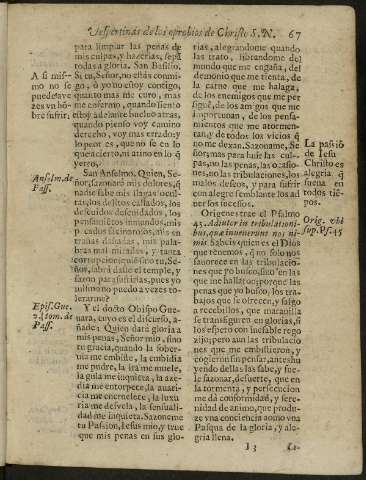 Vespertinas de los oprobios de Christo S.N. 67
para limpiar las penas de
mis culpas, y hazerlas, sepã
todas a gloria. San Basilio.
Si tu, Señor, no estàs conmi
go, ò yo no estoy contigo,
quanto mas me curo, mas
me enfermo, quando siento
estoy adelante buelvo atras,
quando pienso voy camino
derecho, voy mas errado; y
lo peor es, que no se en lo
que acierto, ni atino en lo q̃
yerro.
A si mis-
mo no se
puede ave
zes vn hõ-
bre sufrir.
San Anselmo. Quien, Se-
ñor, sazonarà mis dolores, q̃
nadie sabe mis llagas ocul-
ras, los delitos callados, los
descuidos desmedidos, los
pensamientos inmundos, mis
pecados asquerosos, mis en-
trañas dañadas, mis pala-
bras mal miradas, y tanta
corrupcion; quiē sino tu, Se-
ñor, sabrà darle el temple, y
sazon para sufrirlas, pues yo
mismo no puedo a vezes to-
lerarme?
Anselm. de
Pass.
Y el docto Obispo Gue-
uara, cuyo es el discurso, a-
ñade; Quien darà gloria a
mis penas, Señor mio, sino
tu gracia, quando la sober-
uia me embiste, la embidia
me pudre, la ira me muele,
la gula me inquieta, la aze-
dia me entorpece, la auari-
cia me encruelece, la luxu
ria me desvela, la sensuali-
dad me inquieta. Sazoneme
tu Passion, Iesus mio, y tuue
que mis penas en sus glo-
Episc. Gue
v. 2. tom. de
Pass.
rias, alegrandome quando
las trato, librandome del
mundo que me engaña, del
demonio que me tienta, de
la carne que me halaga,
de los enemigos que me per
sigue, de los amigos que me
importunan, de los pensa-
mientos que me atormen-
tan, y de todos los vicios q̃
no me dexan. Sazoname, Se
ñor; mas para huir las cul-
pas, no las penas, las ocasio-
nes, no las tribulaciones, los
malos defeos, y para sufrir
con alegre semblante los ad
uersos sucessos.
La passiõ
de Iesu
Christo es
alegria q̃
suena en
todos tiē-
pos.
Origenes trae el Psalmo
45. Adiutor in tribulationi-
bus, quæ inuenerunt nos ni-
mis. Sabeis quien es el Dios
que tenemos, q̃ no solo nos
fauorece en las tribulacio-
nes que yo busco, sino en las
que me hallaro; porque las
penas que yo busco, los tra-
bajos que se ofrecen, y salgo
a recebillos, que marauilla
se transfiguren en glorias, si
los espero con inefable rego
zijo; pero aun las tribulacio
nes que me embistieron, y
cogieron sin pensar, antes hu
yendo dellas las sabe, y sue-
le sazonar, de suerte, que en
la tormenta, y persecucion
me dà conformidad, y sere-
nidad de animo, que produ-
ze vna conciencia como vna
Pasqua de la gloria, y ale-
gria llena.
Orig. vbi
sup. Ps. 45
I 3 Li-